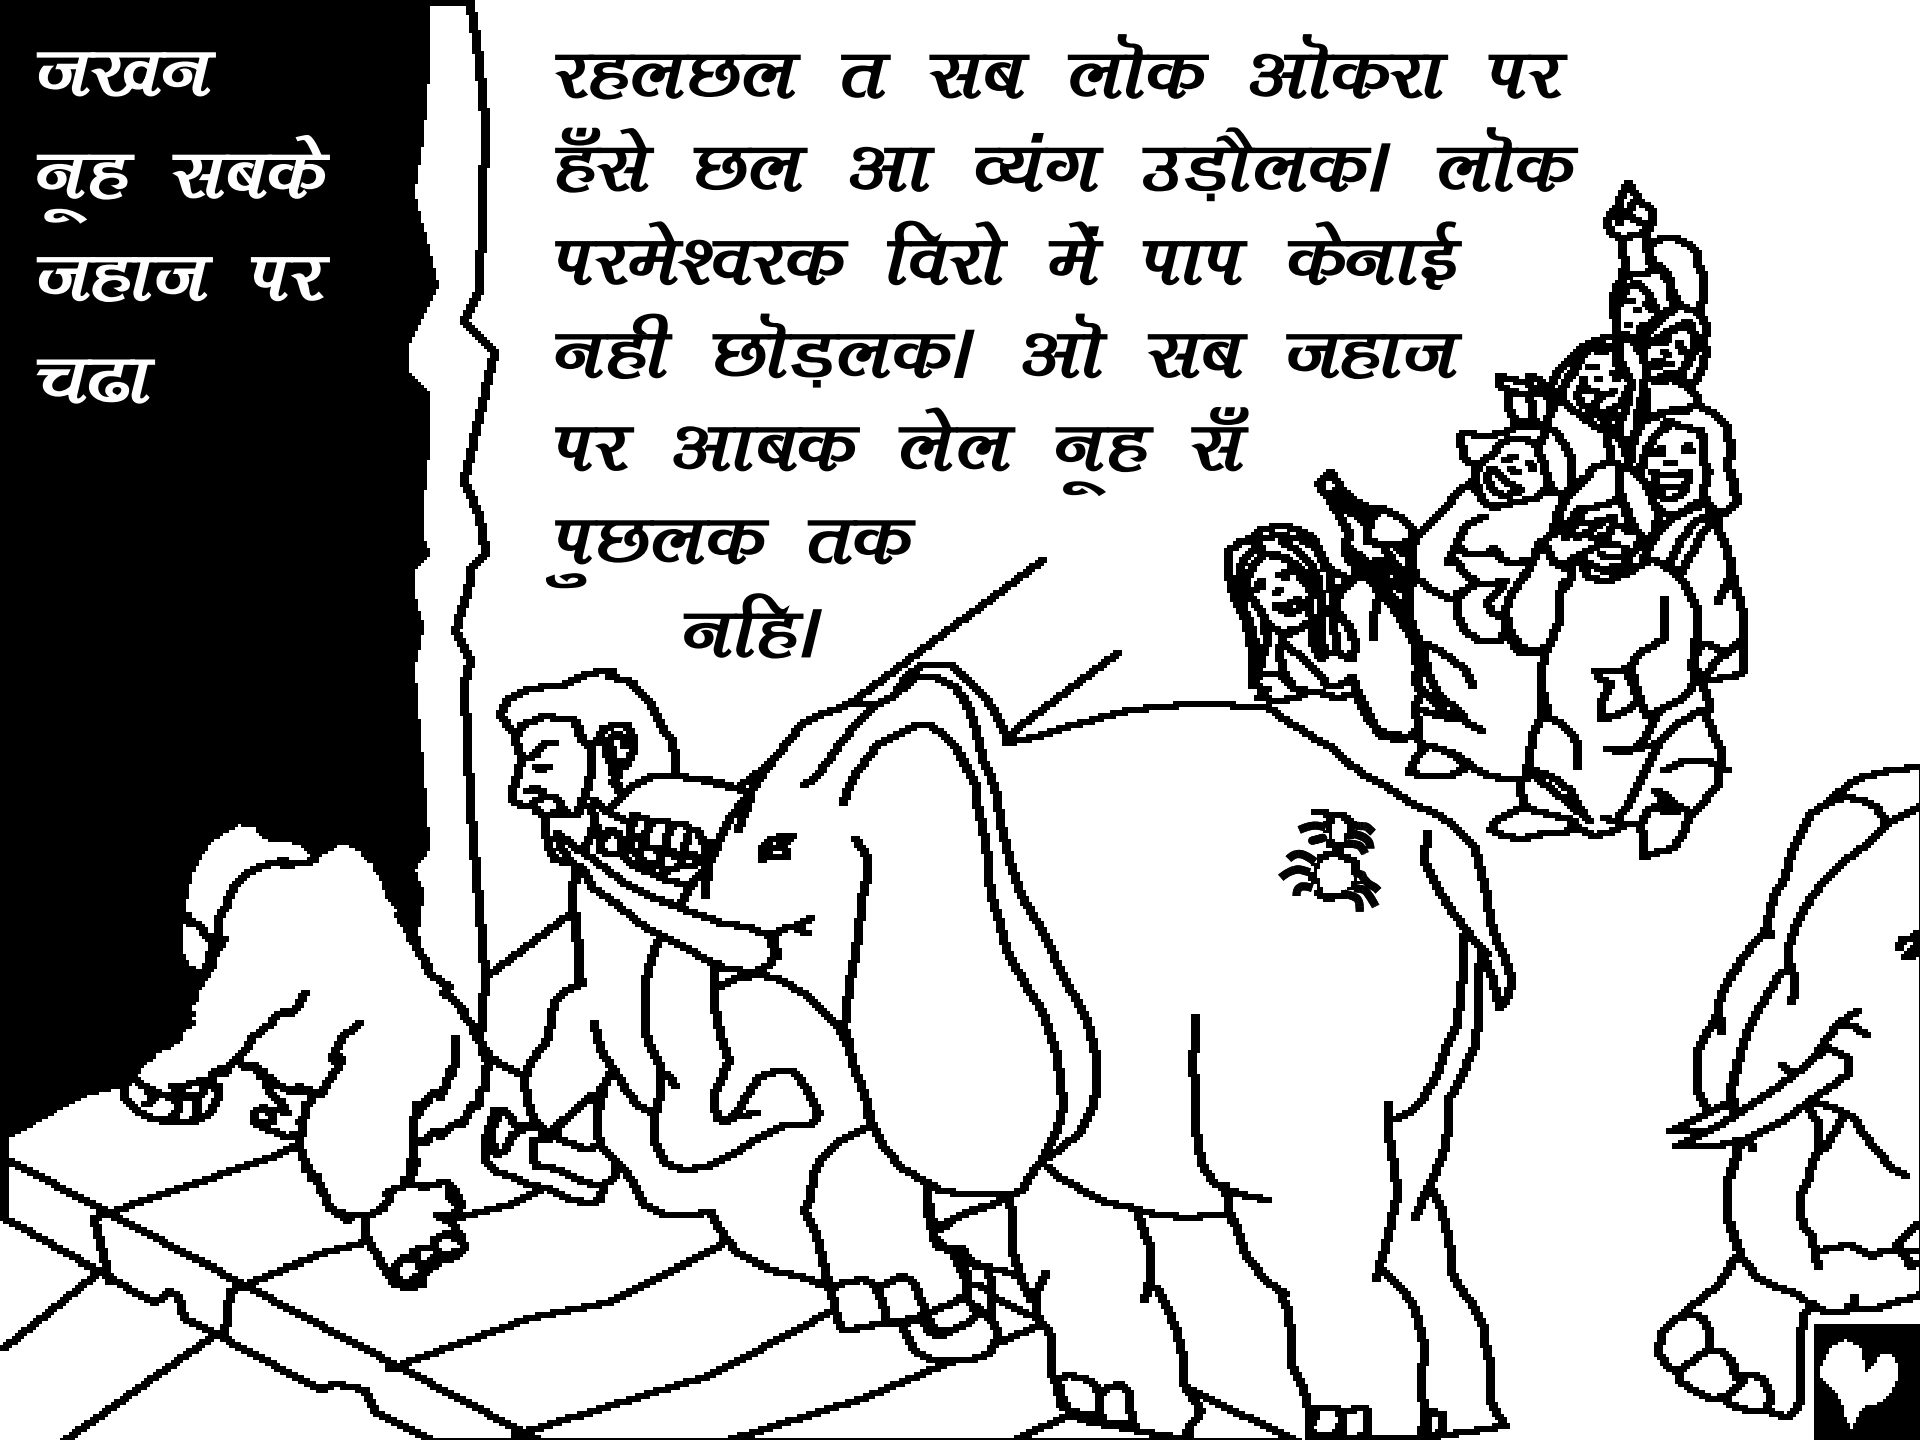 जखन
नूह सबके
जहाज पर
चढा
रहलछल त सब लॊक ऒकरा पर
हँसे छल आ व्यंग उड़ौलक। लॊक
परमेश्वरक विरो में पाप केनाई
नही छॊड़लक। ऒ सब जहाज
पर आबक लेल नूह सँ
पुछलक तक
नहि।